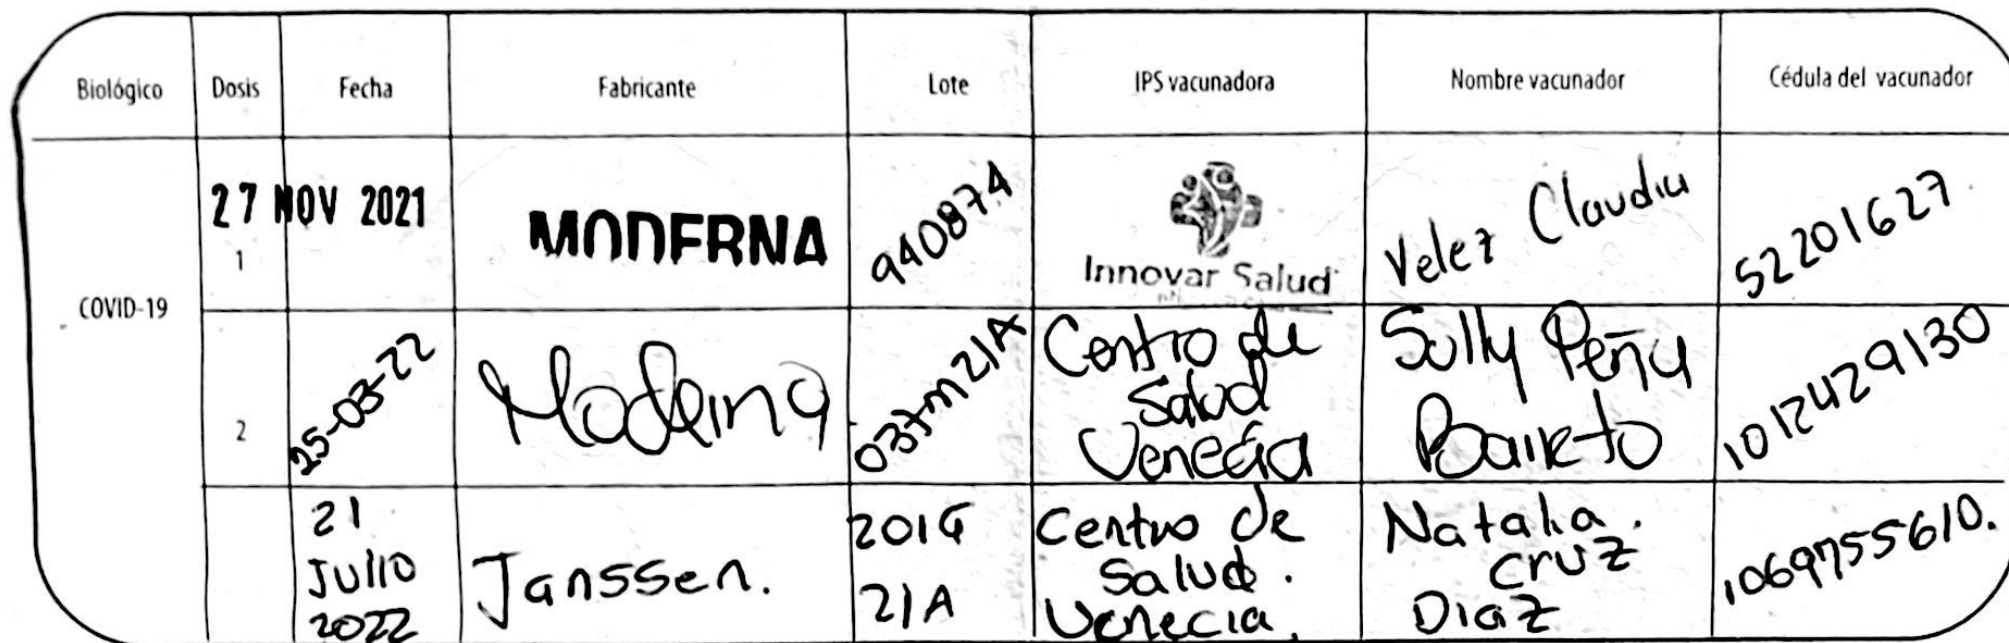 Biológico Dosis Fecha Fabricante Lote IPS vacunadora Nombre vacunador Cédula del vacunador
COVID-19
27 NOV 2021
1
MODERNA
940874
Innovar Salud
Velez Claudia
52201627
2
25-03-22
Moderna
037m21A
Centro de
Salud
Venecia
Sully Peña
Barreto
1012429130
21
Julio
2022
Janssen.
201G
21A
Centro de
Salud.
Venecia.
Natalia.
Cruz
Diaz
1069755610.